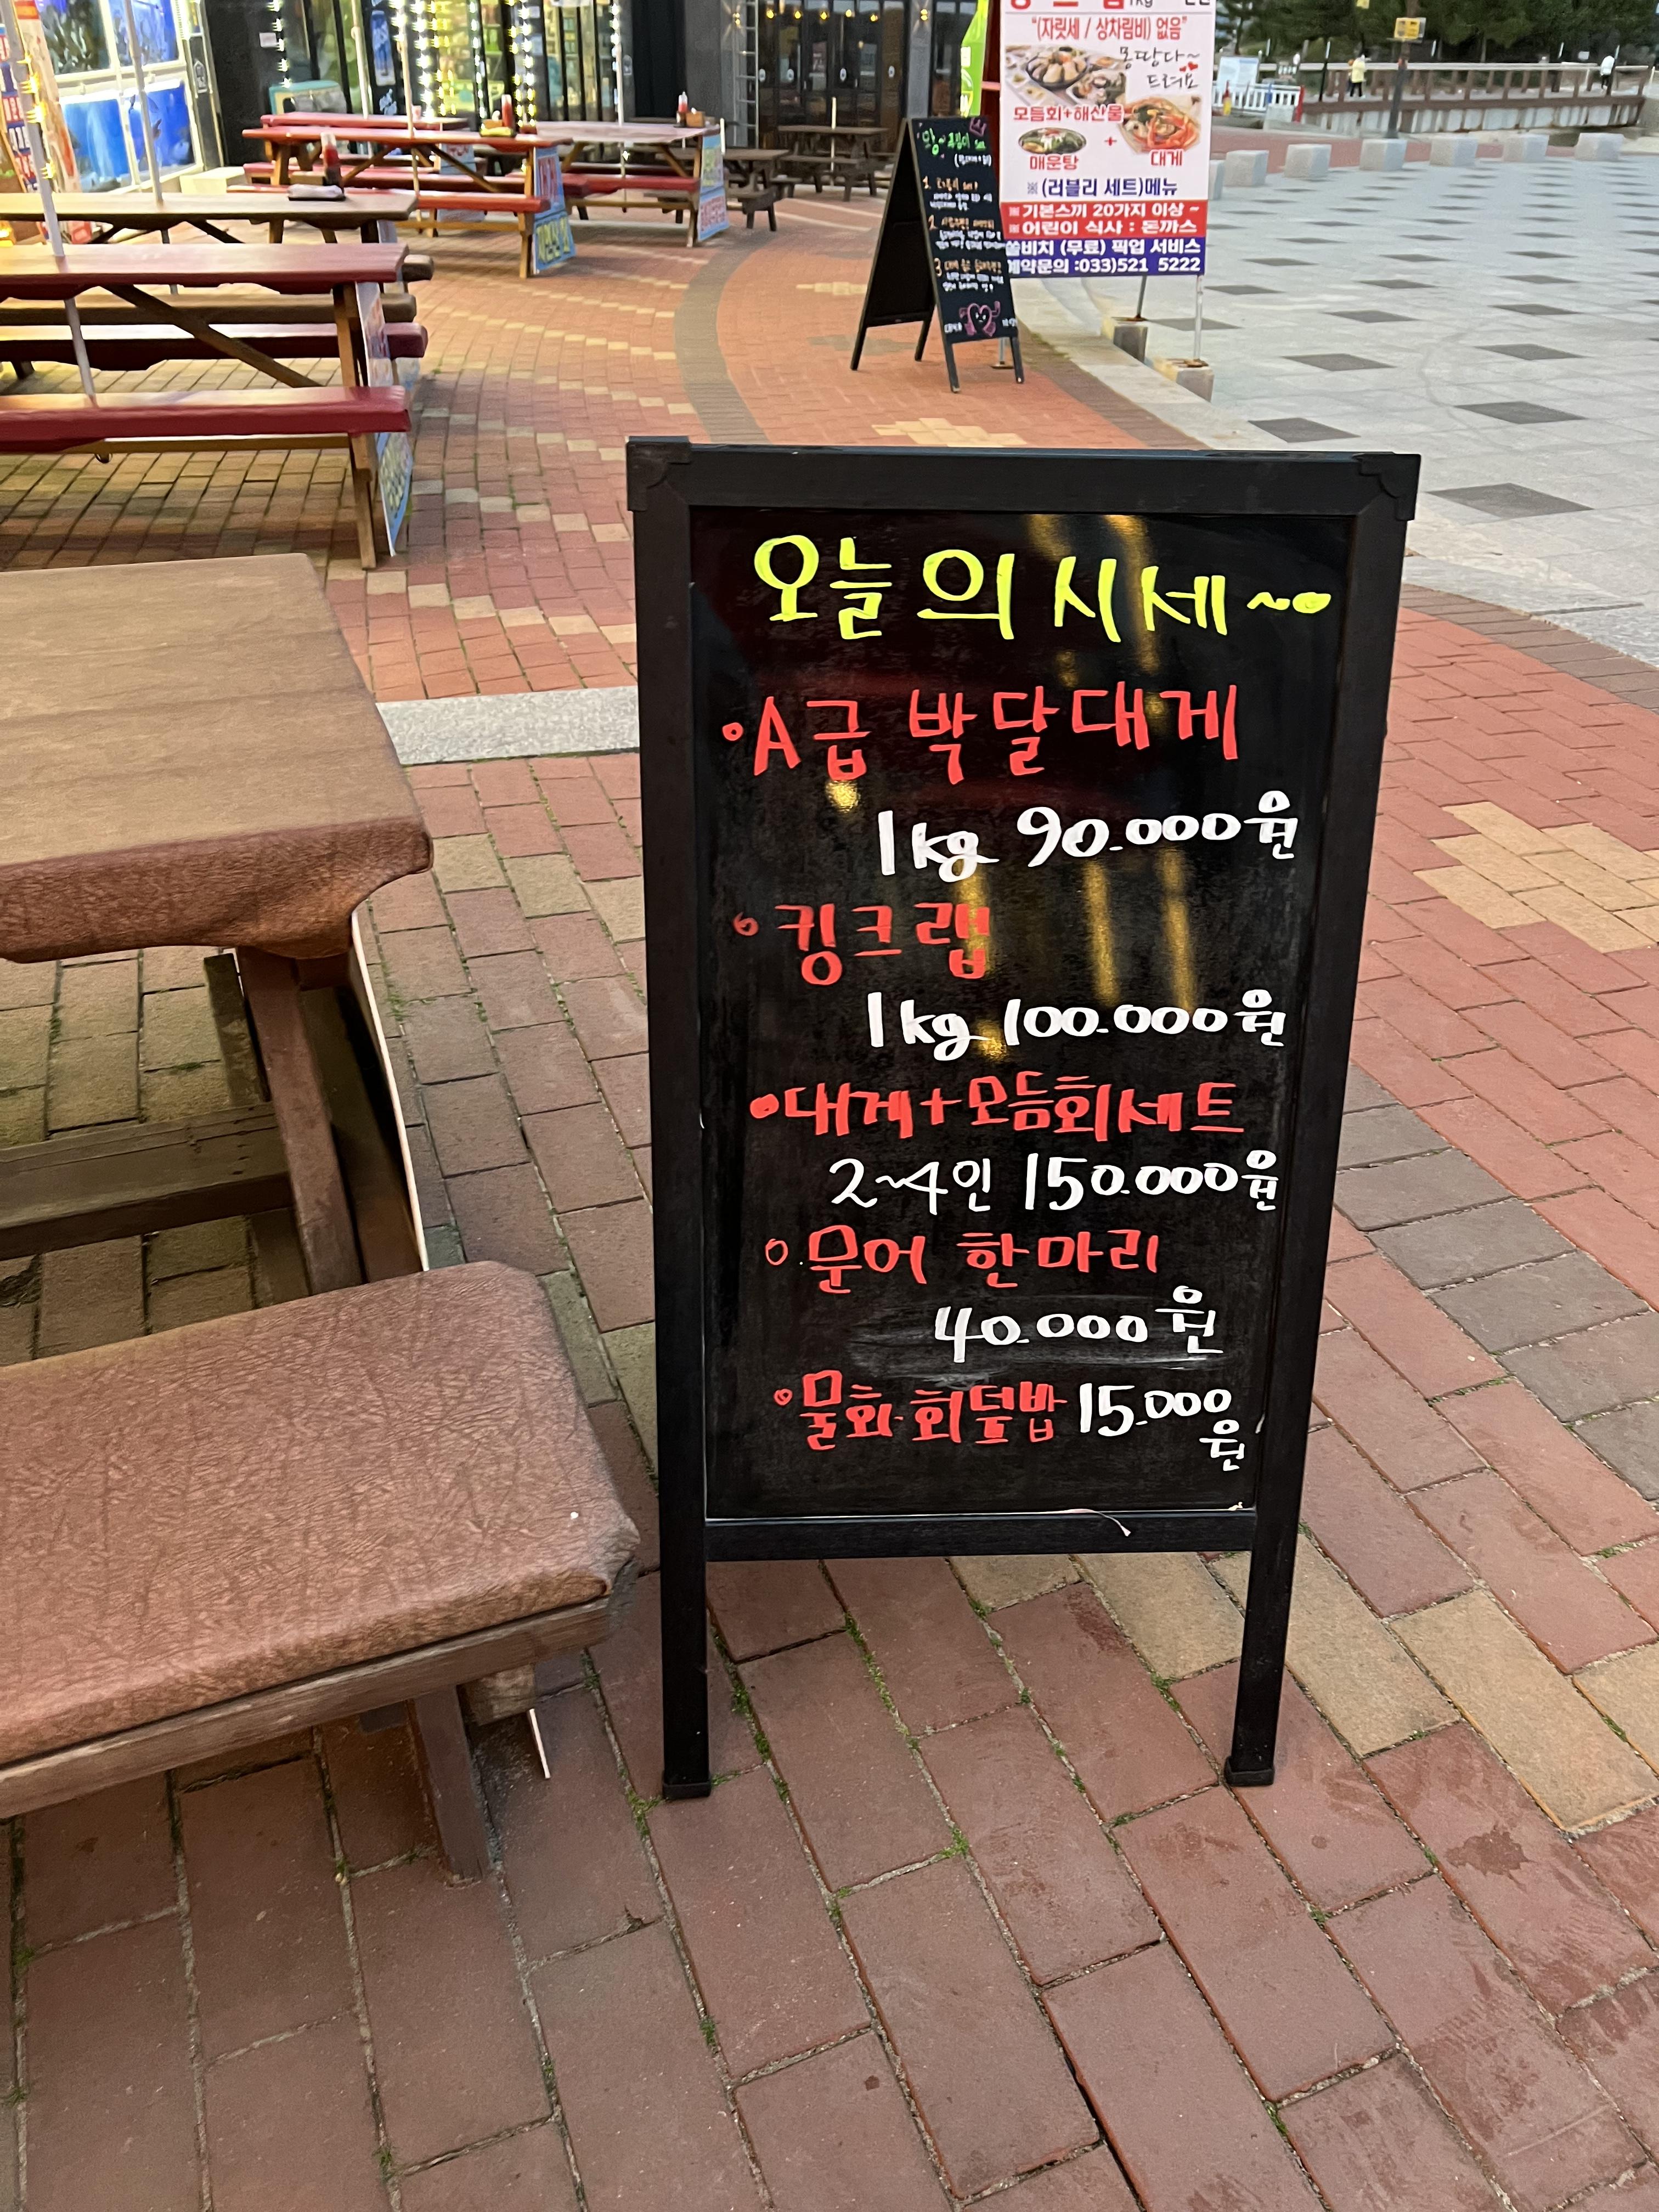 "(자릿세 / 상차림비) 없음"
몽땅다~
드려요
모듬회+해산물
+
매운탕
대게
※ (러블리 세트)메뉴
※ 기본스끼 20가지 이상 ~
※ 어린이 식사 : 돈까스
쏠비치 (무료) 픽업 서비스
예약문의 :033)521 5222
오늘의 시세~
•A급 박달대게
1kg 90.000원
•킹크랩
1kg 100.000원
•대게+모듬회세트
2~4인 150.000원
•문어 한마리
40.000원
•물회·회덮밥 15.000
원